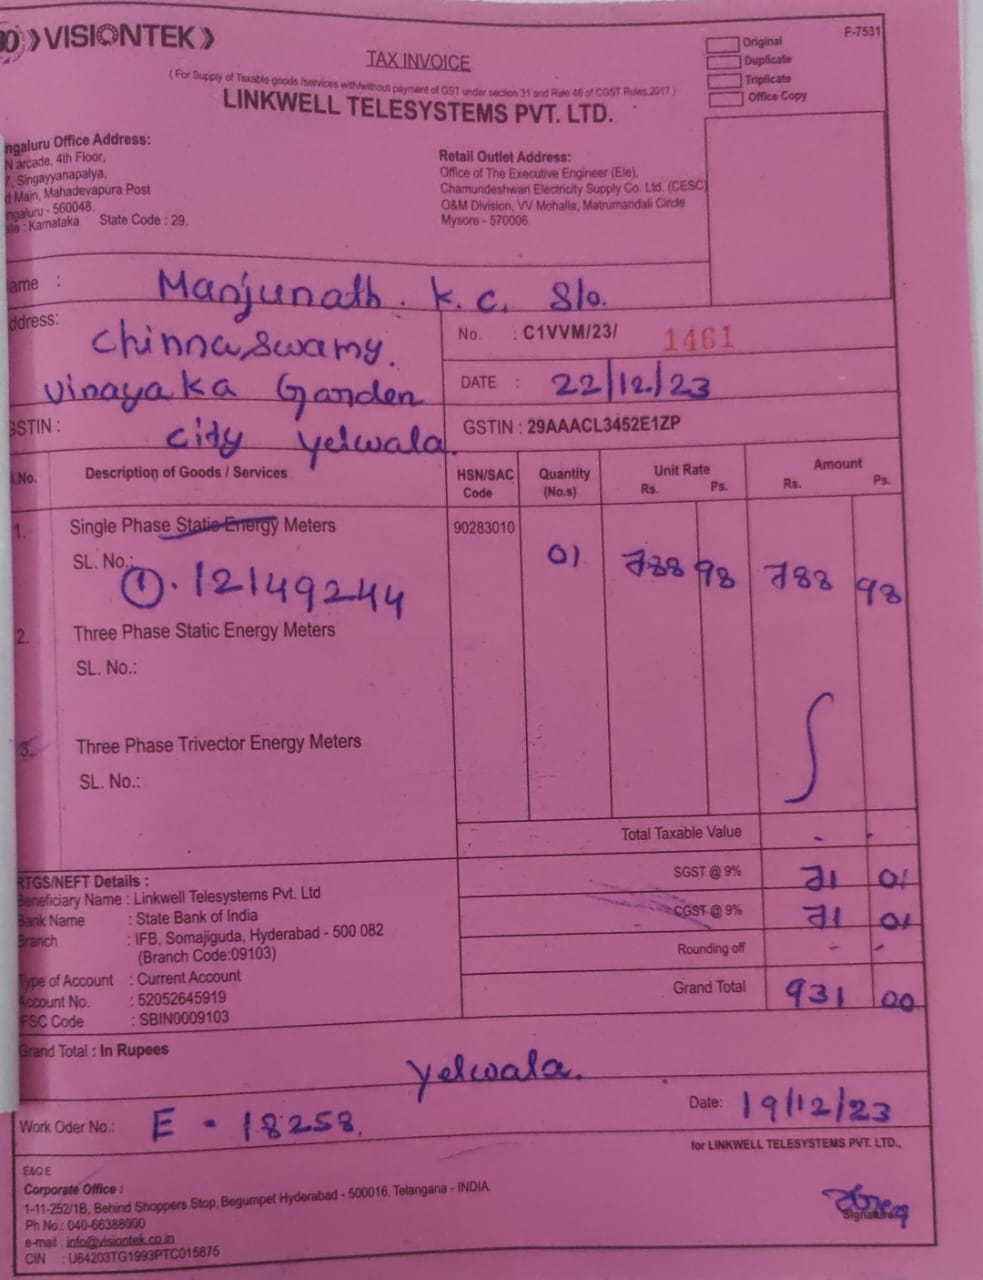 VISIONTEK
F-7531
TAX INVOICE
Original
Duplicate
Triplicate
Office Copy
( For Supply of Taxable goods /services with/without payment of GST under section 31 and Rule 46 of CGST Rules.2017 )
LINKWELL TELESYSTEMS PVT. LTD.
ngaluru Office Address:
N arcade, 4th Floor,
7, Singayyanapalya,
d Main, Mahadevapura Post
ngaluru - 560048.
ate : Karnataka State Code : 29.
Retail Outlet Address:
Office of The Executive Engineer (Ele),
Chamundeshwari Electricity Supply Co. Ltd. (CESC)
O&M Division, VV Mohalla, Matrumandali Circle
Mysore - 570006.
ame : Manjunath. K.C. S/o.
ddress: Chinnaswamy.
Vinayaka Garden
City Yelwala.
No. : C1VVM/23/ 1461
DATE : 22/12/23
GSTIN :
GSTIN : 29AAACL3452E1ZP
l.No. Description of Goods / Services HSN/SAC Code Quantity (No.s) Unit Rate Rs. Ps. Amount Rs. Ps.
1. Single Phase Static Energy Meters 90283010
SL. No.: ①. 12149244 01 788 98 788 98
2. Three Phase Static Energy Meters
SL. No.:
3. Three Phase Trivector Energy Meters
SL. No.:
Total Taxable Value - -
SGST @ 9% 71 01
CGST @ 9% 71 01
Rounding off - -
Grand Total 931 00
RTGS/NEFT Details :
Beneficiary Name : Linkwell Telesystems Pvt. Ltd
Bank Name : State Bank of India
Branch : IFB, Somajiguda, Hyderabad - 500 082
(Branch Code:09103)
Type of Account : Current Account
Account No. : 52052645919
FSC Code : SBIN0009103
Grand Total : In Rupees
Yelwala.
Work Oder No.: E - 18258.
Date: 19/12/23
for LINKWELL TELESYSTEMS PVT. LTD.,
E&O E
Corporate Office :
1-11-252/1B, Behind Shoppers Stop, Begumpet Hyderabad - 500016. Telangana - INDIA
Ph No.: 040-66388000
e-mail : info@visiontek.co.in
CIN : U64203TG1993PTC015875
Signature